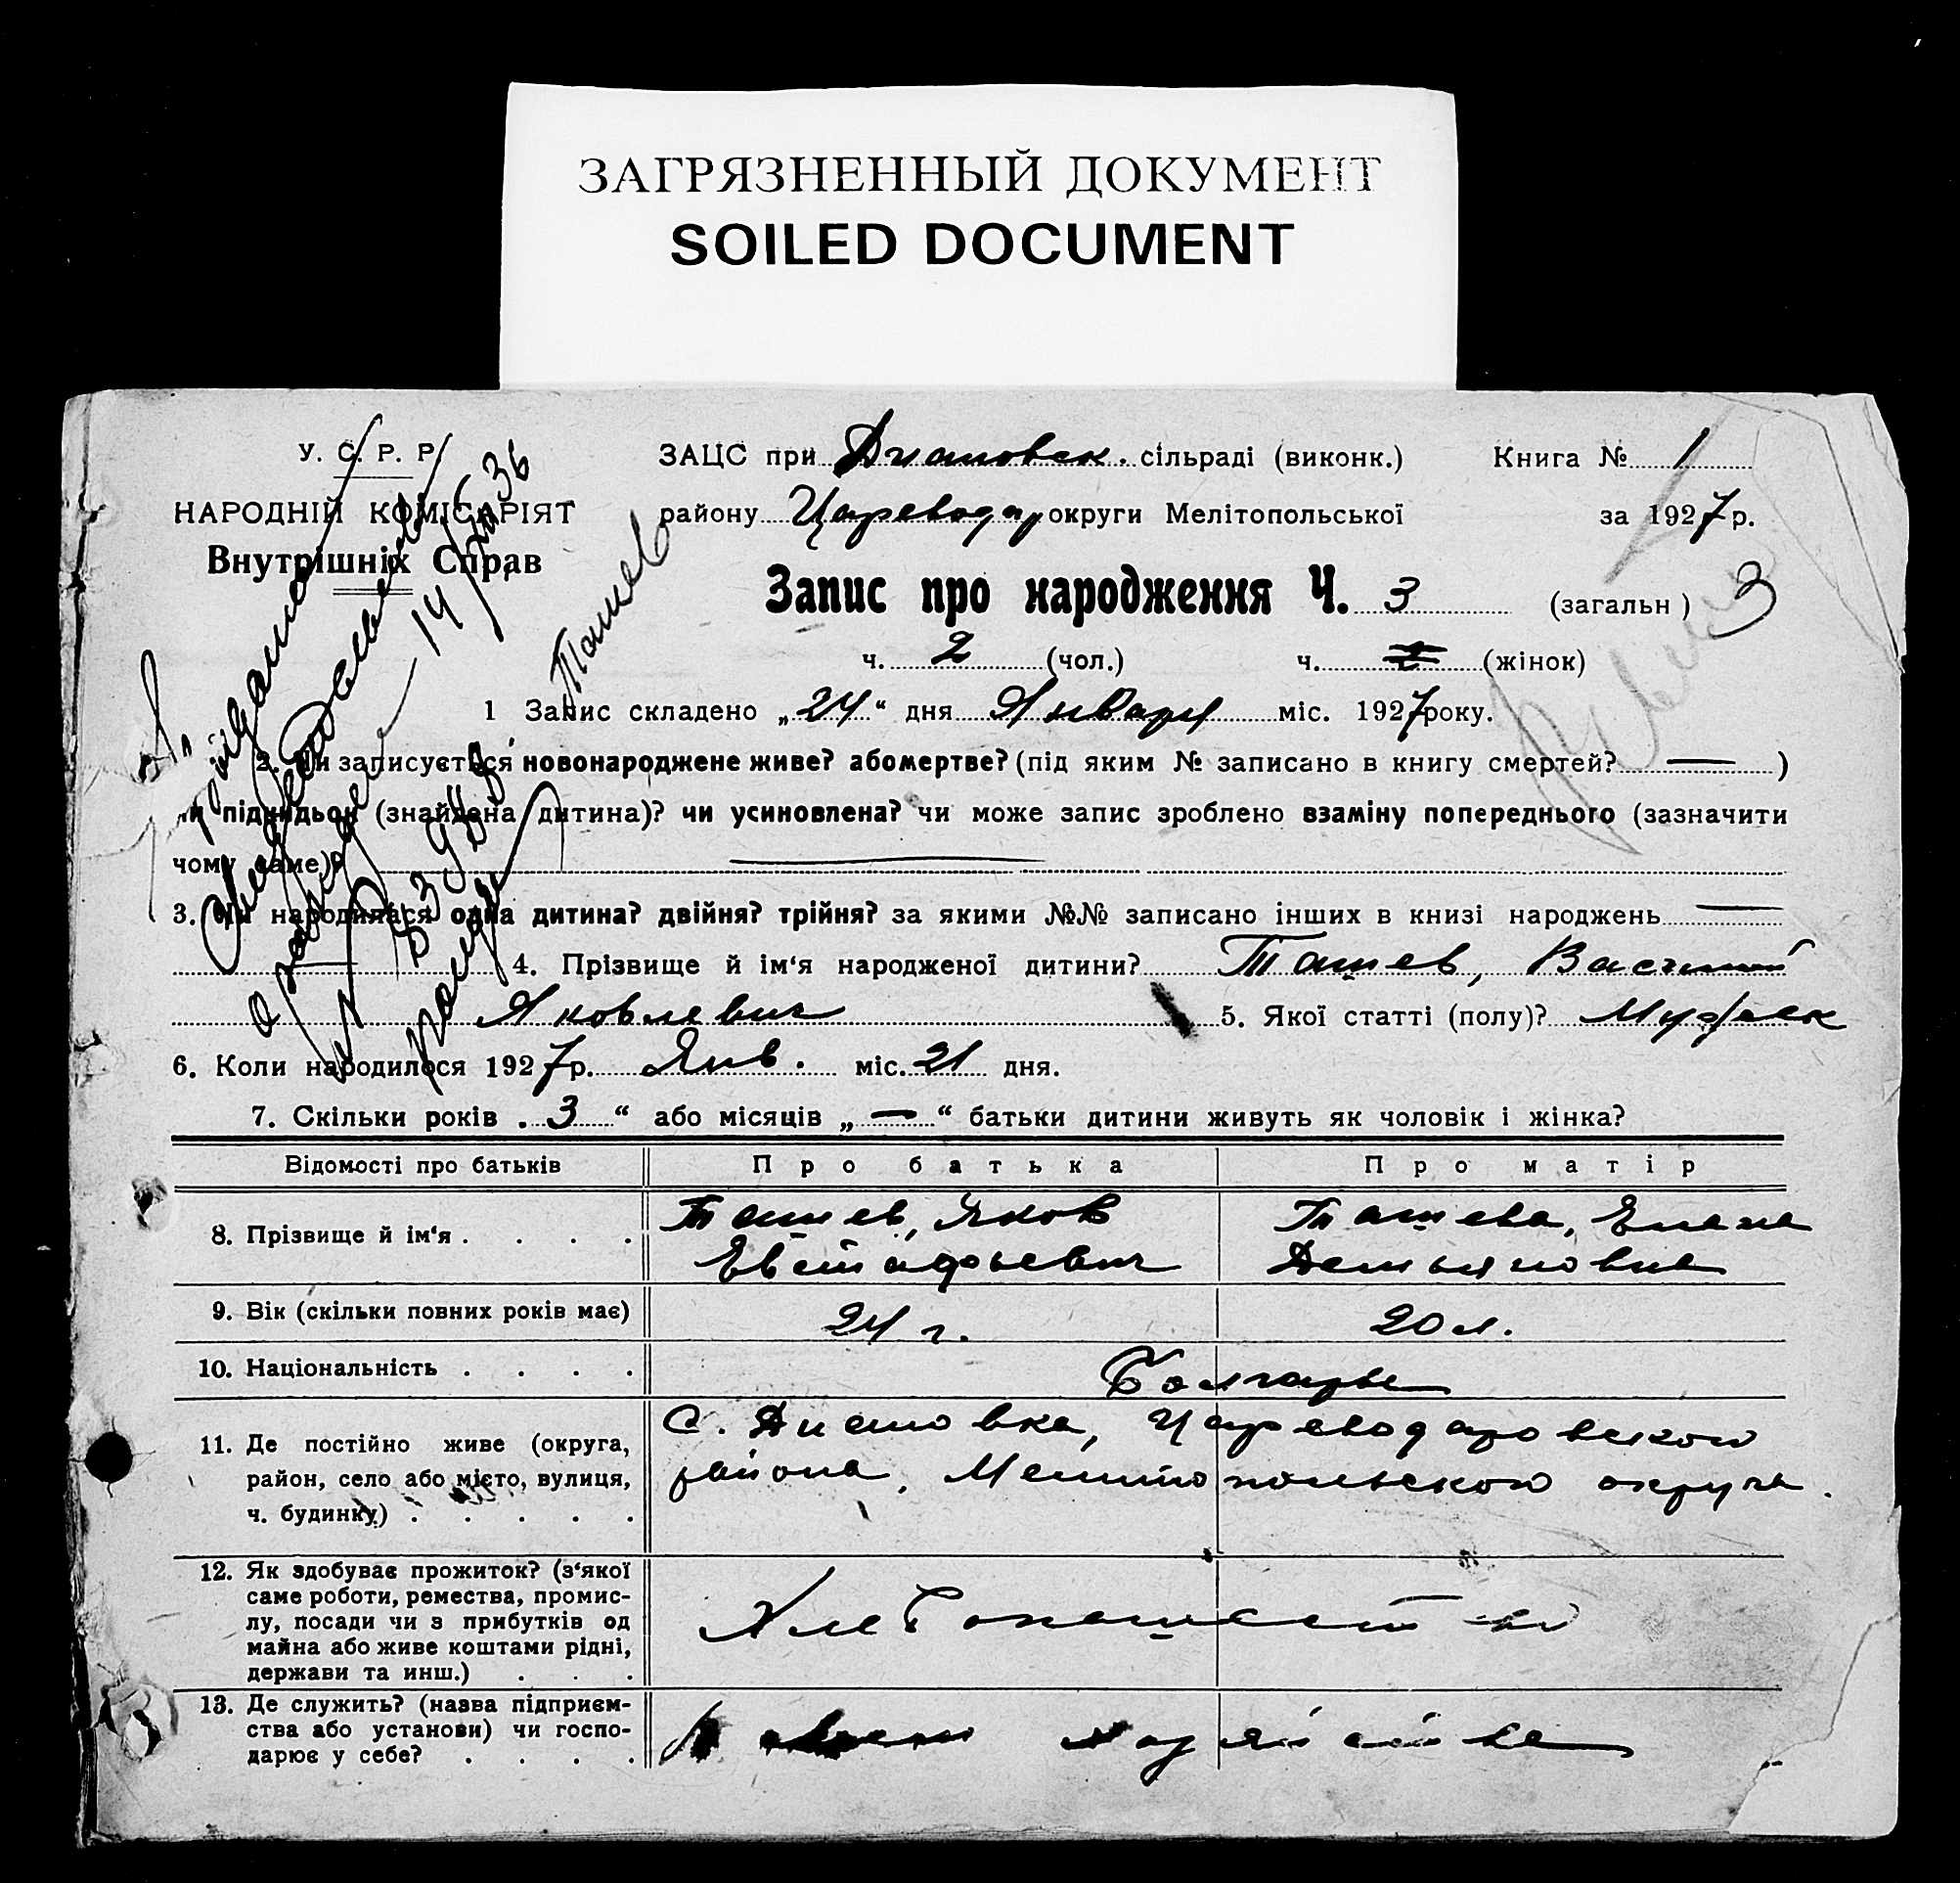 ЗАГРЯЗНЕННЫЙ ДОКУМЕНТ
SOILED DOCUMENT
У. С. Р. Р.
НАРОДНІЙ КОМІСАРІЯТ
Внутрішніх Справ
ЗАЦС при сільраді (виконк.) Книга № 1
району Цареводар округи Мелітопольської за 1927 р.
Запис про народження Ч. 3 (загальн) 3
ч. 2 (чол.) ч. (жінок)
Ташев
14 36
1 Запис складено „24“ дня Января міс. 1927 року.
2. Чи записується новонароджене живе? або мертве? (під яким № записано в книгу смертей? — )
чи підкидьок (знайдена дитина)? чи усиновлена? чи може запис зроблено взаміну попереднього (зазначити
чому саме)
3. Чи народилася одна дитина? двійня? трійня? за якими №№ записано інших в книзі народжень —
4. Прізвище й ім‘я народженої дитини? Ташев, Василий
Яковлевич 5. Якої статті (полу)? Мужеск
6. Коли народилося 1927 р. Янв. міс. 21 дня.
7. Скільки років „3“ або місяців „—“ батьки дитини живуть як чоловік і жінка?
Відомості про батьків Про батька Про матір
8. Прізвище й ім‘я . . . . Ташев, Яков Ташева, Елена
Евстафьевич Демьяновна
9. Вік (скільки повних років має) 24 г. 20 л.
10. Національність . . . . Болгары
11. Де постійно живе (округа, С. Цареводаровского
район, село або місто, вулиця, района, Мелитопольского округа.
ч. будинку) . . . . .
12. Як здобуває прожиток? (з‘якої
саме роботи, ремества, промис-
лу, посади чи з прибутків од Хлебопашеством
майна або живе коштами рідні,
держави та инш.) . . .
13. Де служить? (назва підприєм-
ства або установи) чи госпо- В своем хозяйстве
дарює у себе? . . . .